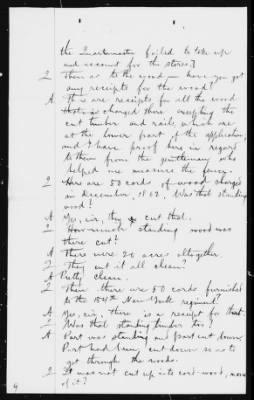 the Quartermaster failed to take up
and account for the stores.]
Q Then as to the wood - have you got
any receipts for the wood?
A There are receipts for all the wood
that is charged there excepting the
cut timber and rails, which are
at the lower part of the application,
and I have proof here in regard
to them from the gentleman who
helped me measure the fence.
Q Here are 50 cords of wood charged
in December, 1862. Was that standing
wood?
A Yes, sir, they cut that.
Q How much standing wood was
there cut?
A There were 20 acres altogether.
Q They cut it all clean?
A Pretty clean.
Q Then there are 50 cords furnished
to the 154th New York regiment?
A Yes, sir, there is a receipt for that.
Q Was that standing timber too?
A Part was standing and part cut down,
Part had been cut down so as to
get through the woods.
Q It was not cut up into cord-wood, none
of it?